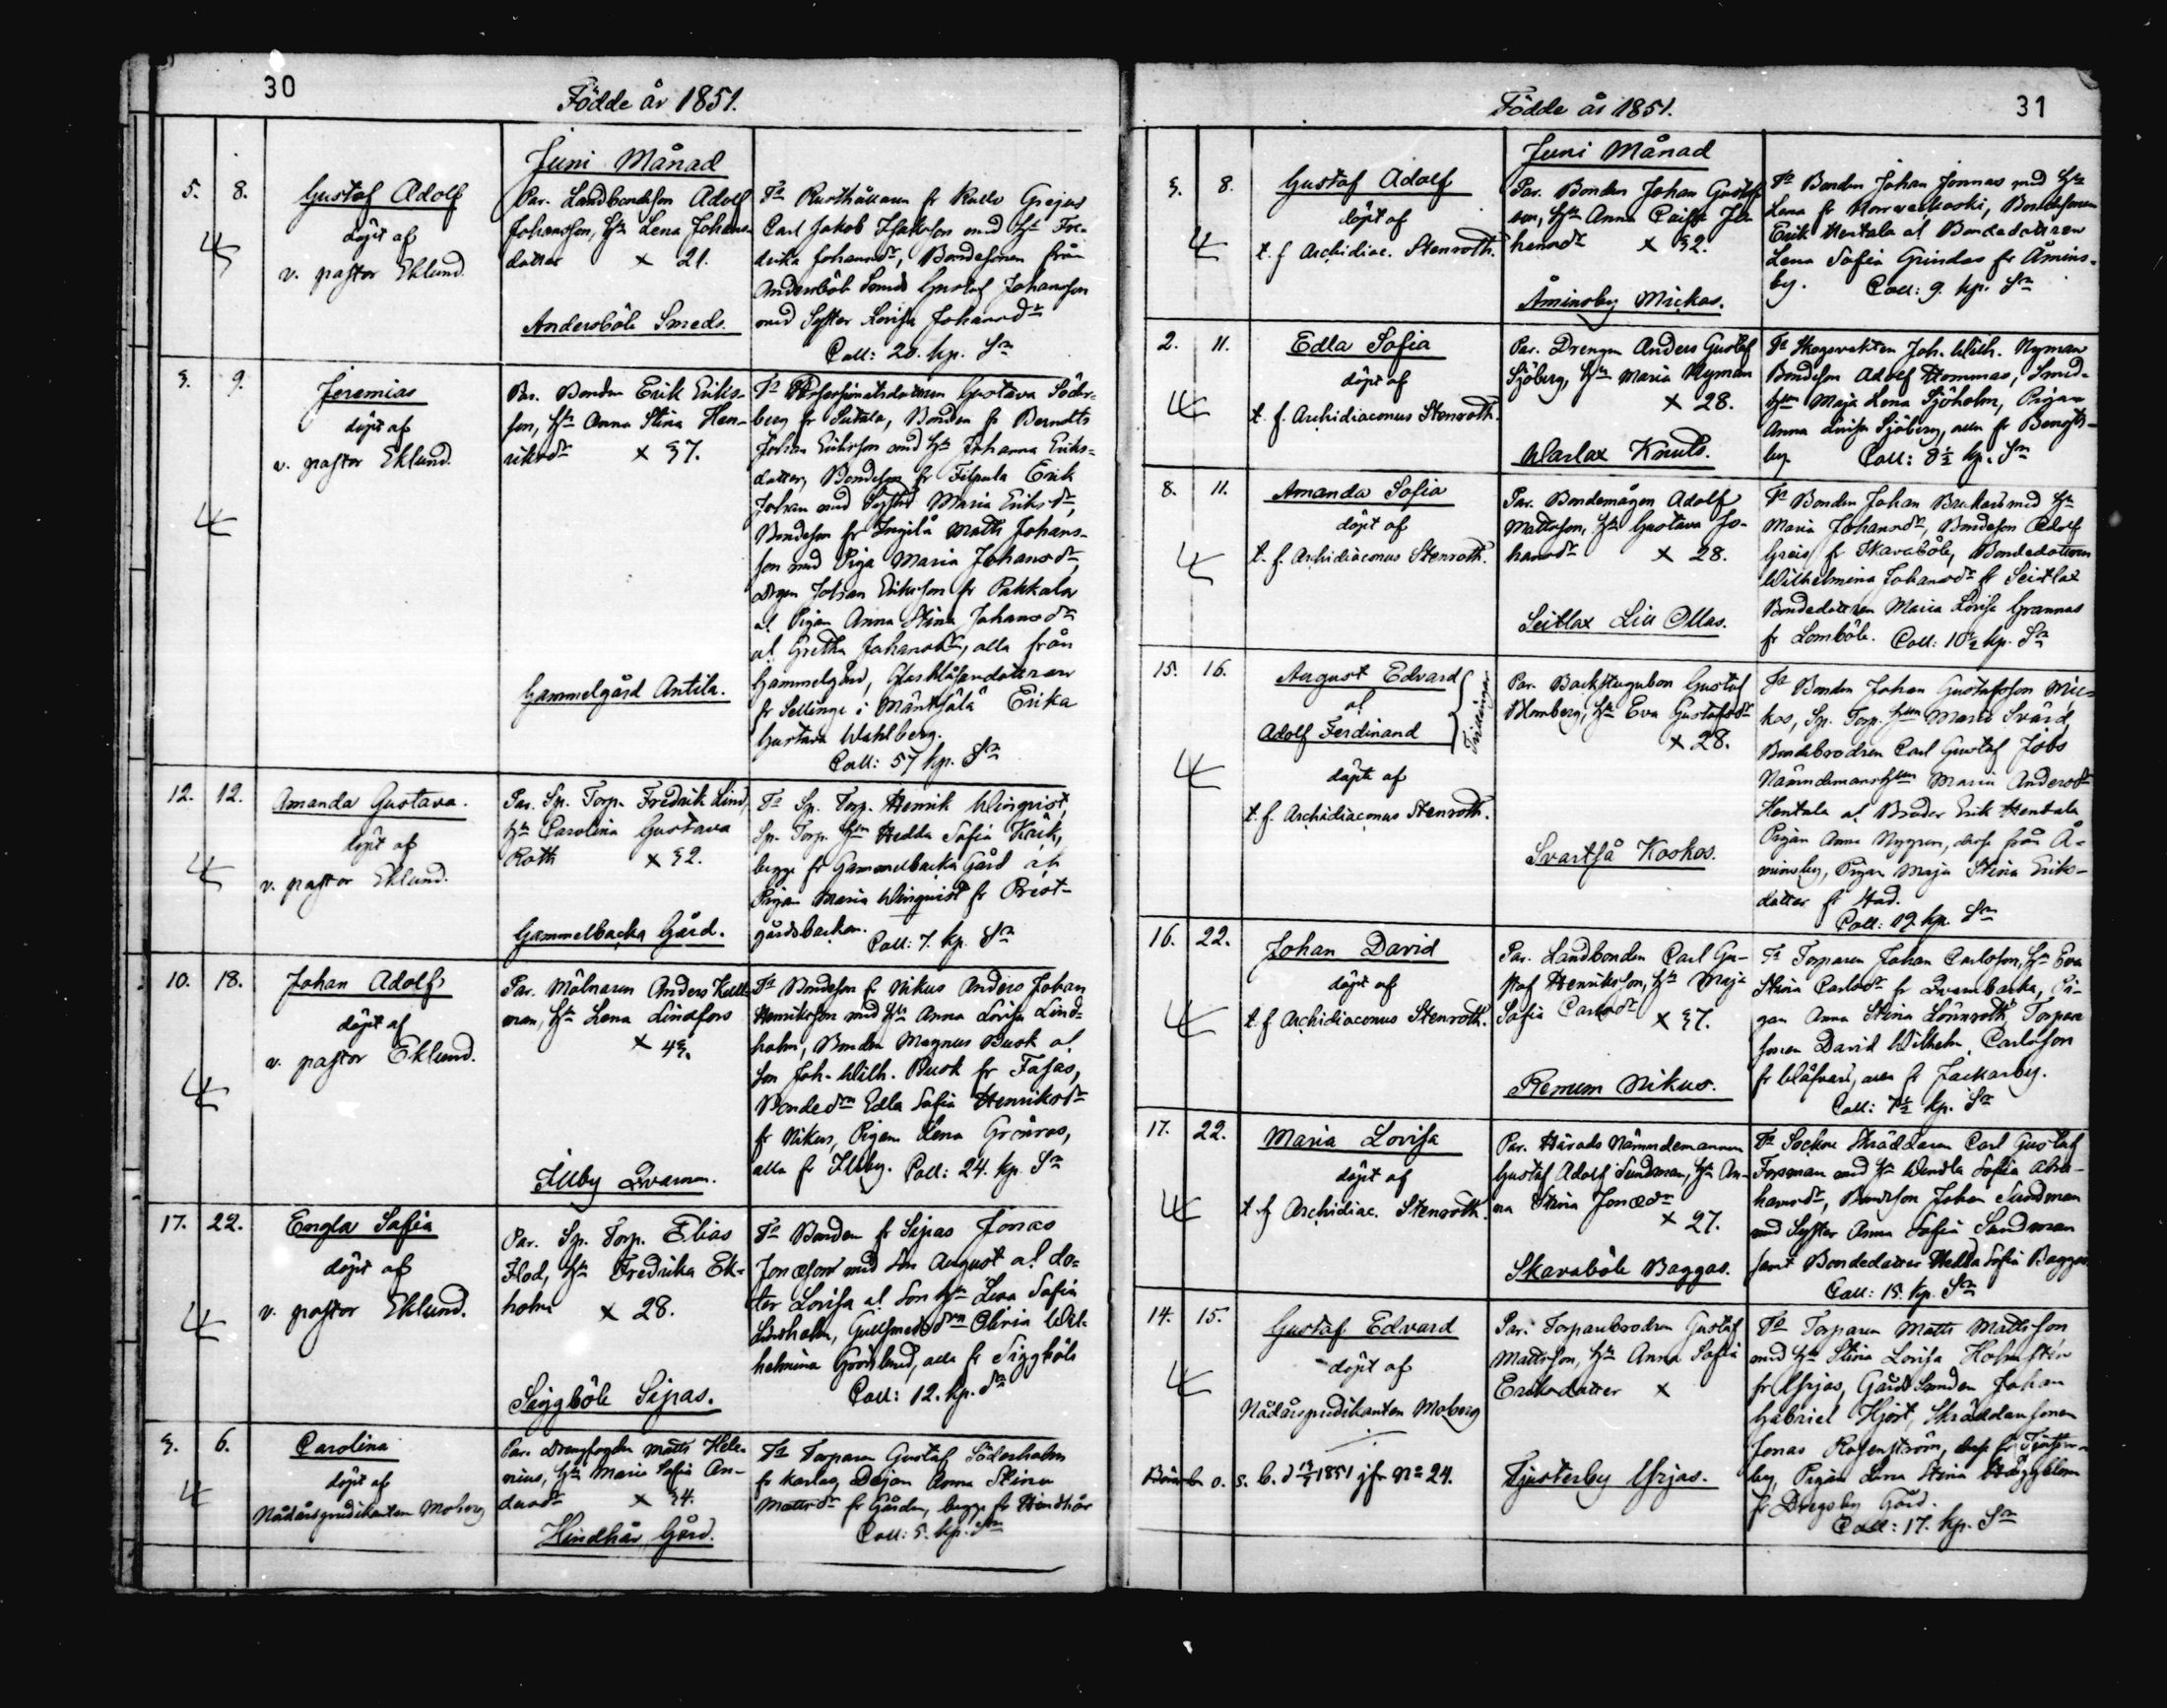 30
Födde år 1851.
Juni Månad
5. 8. Gustaf Adolf
döpt af
v. pastor Eklund.
Par. Landbondeson Adolf
Johansson, Hn Lena Johans-
dotter x 21.
Andersböle Smeds.
Fa Rusthållaren fr Grejus
Carl Jakob Isaksson med Hn Fre-
drika Johansdr, Bondesonen från
Andersböle Smeds Gustaf Johansson
med Syster Lovisa Johansdr
Coll: 20. kp. Sr
3. 9. Jeremias
döpt af
v. pastor Eklund.
Par. Bonden Erik Eriks-
son, Hn Anna Stina Hen-
riksdr x 37.
Gammelgård Antila.
Gustava Söder-
berg fr Bonden fr Berndts
Johan Eriksson med Hn Johanna Eriks-
dotter, Bondeson fr Filpula Erik
Johan med Syster Maria Eriksdr,
Bondeson fr Matts Johans-
son med Piga Maria Johansdr,
Drgen Johan Eriksson fr Pakkala
al Pigan Anna Stina Johansdr
al Gretha Johansdr, alla från
Gammelgård, Glasblåsaredottren
fr Sellinge i Mäntsälä Erika
Gustava Wahlberg.
Coll: 57 kp. Sr
12. 12. Amanda Gustava.
döpt af
v. pastor Eklund.
Par. Sp. Torp. Fredrik Lind,
Hn Carolina Gustava
Roth x 32.
Gammelbacka Gård.
Fa Sp. Torp. Henrik Winqvist,
Sp. Torp. Hedda Sofia
begge fr Gammelbacka Gård
Pigan Maria Winqvist fr Prest-
gårdsbacken.
Coll: 7. kp. Sr
10. 18. Johan Adolf
döpt af
v. pastor Eklund.
Par. Mölnaren Anders Kull-
man, Hn Lena Lindfors
x 43.
Illby Qvarn.
Fa Bondeson fr Nikus Anders Johan
Henriksson med Hn Anna Lovisa Lind-
holm, Bonden Magnus Busk al
Son Joh. Wilh. Busk fr Fasas,
Bondedrn Edla Sofia Henriksdr
fr Nikus, Pigan Lena Grönros,
alla fr Illby. Coll: 24. kp. Sr
17. 22. Engla Sofia
döpt af
v. pastor Eklund.
Par. Sp. Torp. Elias
Flod, Hn Fredrika Ek-
holm x 28.
Siggböle Sipas.
Fa Bonden fr Sipas Jonas
Jonasson med Son August al do-
ter Lovisa al Son Hn Lisa Sofia
Lindholm, Gullsmedsdrn Olivia Wil-
helmina Grönlund, alla fr Siggböle
Coll: 12. kp. Sr
3. 6. Carolina
döpt af
Nådårspredikanten Moberg
Par. Drengfogden Matts Hele-
nius, Hn Maria Sofia An-
dersdr x 34.
Hindhår Gård.
Fa Torparen Gustaf Söderholm
fr Karlag Dejan Anna Stina
Mattsdr fr Gården, begge fr Hindhår
Coll: 5. kp. Sr
31
Födde år 1851.
Juni Månad
3. 8. Gustaf Adolf
döpt af
t. f. Archidiac. Stenroth.
Par. Bonden Johan Gustafs-
son, Hn Anna Caisa Jo-
hansdr x 32.
Åminsby Mickas.
Fa Bonden Johan Jonnas med Hn
Lena fr Norrveckoski, Bondesonen
Erik Hentala al Bondedottren
Lena Sofia Grindas fr Åmins-
by. Coll: 9. kp. Sr
2. 11. Edla Sofia
döpt af
t. f. Archidiaconus Stenroth.
Par. Drengen Anders Gustaf
Sjöberg, Hn Maria Nyman
x 28.
Warlax Knuts.
Fa Skogsvakten Joh. Wilh. Nyman
Bondeson Adolf Hommas, Smed-
Maja Lena Sjöholm, Pigan
Anna Lovisa Sjöberg, alla fr Bengts-
by. Coll: 8½ kp. Sr
8. 11. Amanda Sofia
döpt af
t. f. Archidiaconus Stenroth.
Par. Bondemågen Adolf
Mattsson, Hn Gustava Jo-
hansdr x 28.
Seitlax Lill Ollas.
Fa Bonden Johan Backars med Hn
Maria Johansdr, Bondeson Adolf
Greis fr Skavaböle, Bondedottren
Wilhelmina Johansdr fr Seitlax
Bondedottren Maria Lovisa Grannas
fr Lomböle. Coll: 10½ kp. Sr
15. 16. August Edvard
al
Adolf Ferdinand
Tvillingar
döpte af
t. f. Archidiaconus Stenroth.
Par. Backstugubon Gustaf
Blomberg, Hn Eva Gustafsdr
x 28.
Svartså Koskos.
Fa Bonden Johan Gustafsson Mic-
kos, Sp. Torp. Maria Svärd,
Bondebrodren Carl Gustaf Jöbs
Nämndemans Maria Andersdr
Hentala al Broder Erik Hentala
Pigan Anna Nygren, desse från Å-
minsby, Pigan Maja Stina Eriks-
dotter fr Stad.
Coll: 19 kp. Sr
16. 22. Johan David
döpt af
t. f. Archidiaconus Stenroth.
Par. Landbonden Carl Gu-
staf Henriksson, Hn Maja
Sofia Carlsdr x 37.
Renum Nikus.
Fa Torparen Johan Carlsson, Hn Eva
Stina Carlsdr fr Qvarnbacka, Pi-
gan Anna Stina Lönnroth, Torpare
sonen David Wilhelm Carlsson
fr Wäfvars, alla fr Jackarby.
Coll: 7½ kp. Sr
17. 22. Maria Lovisa
döpt af
t. f. Archidiac. Stenroth.
Par. Härads Nämndemannen
Gustaf Adolf Sundman, Hn An-
na Stina Jonasdr
x 27.
Skavaböle Baggas.
Fa Sockne Skräddaren Carl Gustaf
Forsman med Hn Wendla Sofia Abra-
hamsdr, Bondeson Johan Sundman
med Syster Anna Sofia Sundman
samt Bondedotter Hedda Sofia Baggas
Coll: 15. kp. Sr
14. 15. Gustaf Edvard
döpt af
Nådårspredikanten Moberg
o. s. b. d 1851 jfr No 24.
Par. Torparebrodren Gustaf
Mattsson, Hn Anna Sofia
Eriksdotter x
Tjusterby Yrjas.
Fa Torparen Matts Mattsson
med Hn Stina Lovisa Holmstén
fr Yrjas, Gårds Smeden Johan
Gabriel Hjort, Skräddaresonen
Jonas Rosenström, desse fr Tjuster-
by, Pigan Lena Stina Häggblom
fr Drägsby Gård.
Coll: 17. kp. Sr